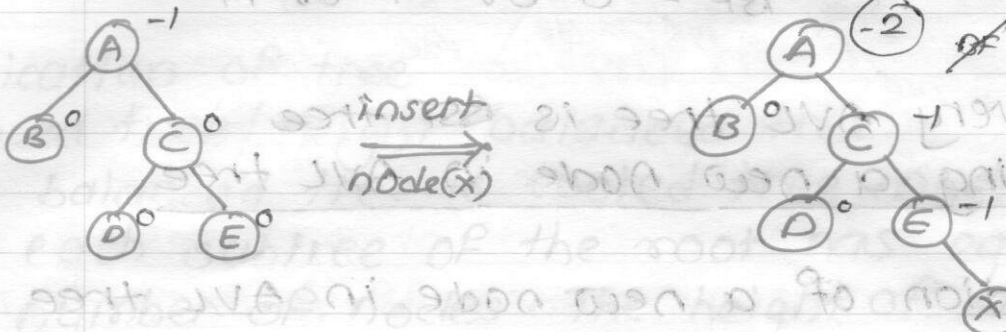 A -1
B 0
C 0
D 0
E 0
insert
node(x)
A -2
B 0
C -1
D 0
E -1
X